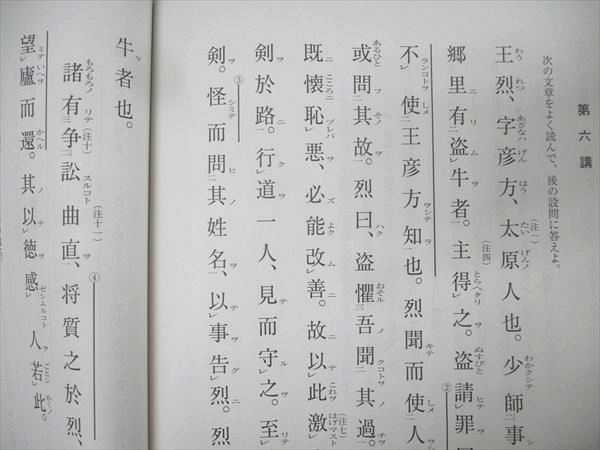 第六講
次の文章をよく読んで、後の設問に答えよ。
王烈、字彦方、太原人也。少師事
郷里有盗牛者。主得之。盗請罪
不使王彦方知也。烈聞而使人
或問其故。烈曰、盗懼吾聞其過。
既懐恥悪、必能改善。故以此激
剣於路。行道一人、見而守之。至
剣。怪而問其姓名、以事告烈。烈
牛者也。
諸有争訟曲直、将質之於烈、
望廬而還。其以徳感人若此。